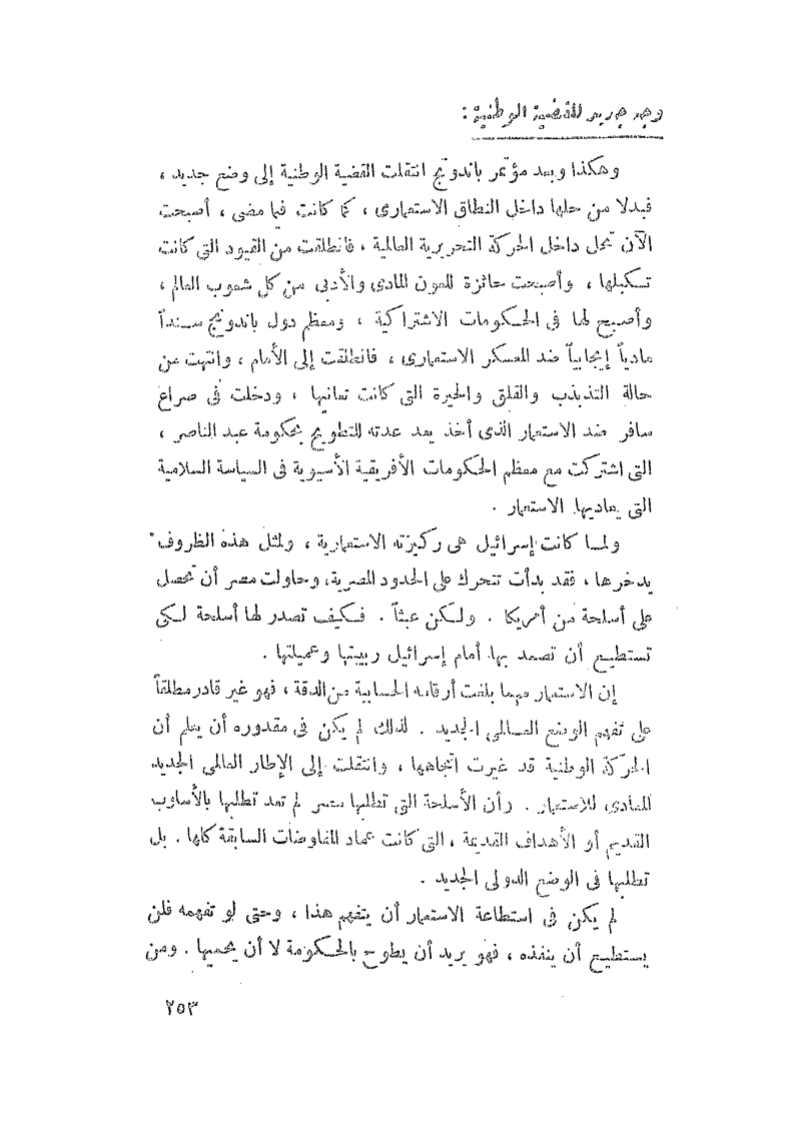 وجه جديد للقضية الوطنية :
وهكذا وبعد مؤتمر باندونج انتقلت القضية الوطنية إلى وضع جديد ،
فبدلا من حلها داخل النطاق الاستعمارى ، كما كانت فيما مضى ، أصبحت
الآن تحل داخل الحركة التحريرية العالمية ، فانطلقت من القيود التى كانت
تسكبلها ، وأصبحت حائزة للعون المادى والأدبى من كل شعوب العالم ،
وأصبح لها فى الحكومات الاشتراكية ، ومعظم دول باندونج سنداً
مادياً إيجابياً ضد المعسكر الاستعمارى ، فانطلقت إلى الأمام ، وانتهت من
حالة التذبذب والقلق والحيرة التى كانت تعانيها ، ودخلت فى صراع
سافر ضد الاستعمار الذى أخذ يعد عدته للتطويح بحكومة عبد الناصر ،
التى اشتركت مع معظم الحكومات الأفريقية الأسيوية فى السياسة السلامية
التى يعاديها الاستعمار .
ولما كانت إسرائيل هى ركيزته الاستعمارية ، ولمثل هذه الظروف
يدخرها ، فقد بدأت تتحرك على الحدود المصرية ، وحاولت مصر أن تحصل
على أسلحة من أمريكا . ولكن عبثاً . فكيف تصدر لها أسلحة لكى
تستطيع أن تصمد بها أمام إسرائيل ربيبتها وعميلتها .
إن الاستعمار مهما بلغت أرقامه الحسابية من الدقة ، فهو غير قادر مطلقاً
على تفهم الوضع العالمى الجديد . لذلك لم يكن فى مقدوره أن يعلم أن
الحركة الوطنية قد غيرت اتجاهها ، وانتقلت إلى الإطار العالمى الجديد
المعادى للاستعمار . وأن الأسلحة التى تطلبها مصر لم تعد تطلبها بالأساوب
القديم أو الأهداف القديمة ، التى كانت عماد المفاوضات السابقة كلها . بل
تطلبها فى الوضع الدولى الجديد .
لم يكن فى استطاعة الاستعمار أن يتفهم هذا ، وحتى لو تفهمه فلن
يستطيع أن ينفذه ، فهو يريد أن يطوح بالحكومة لا أن يحميها . ومن
٢٥٣